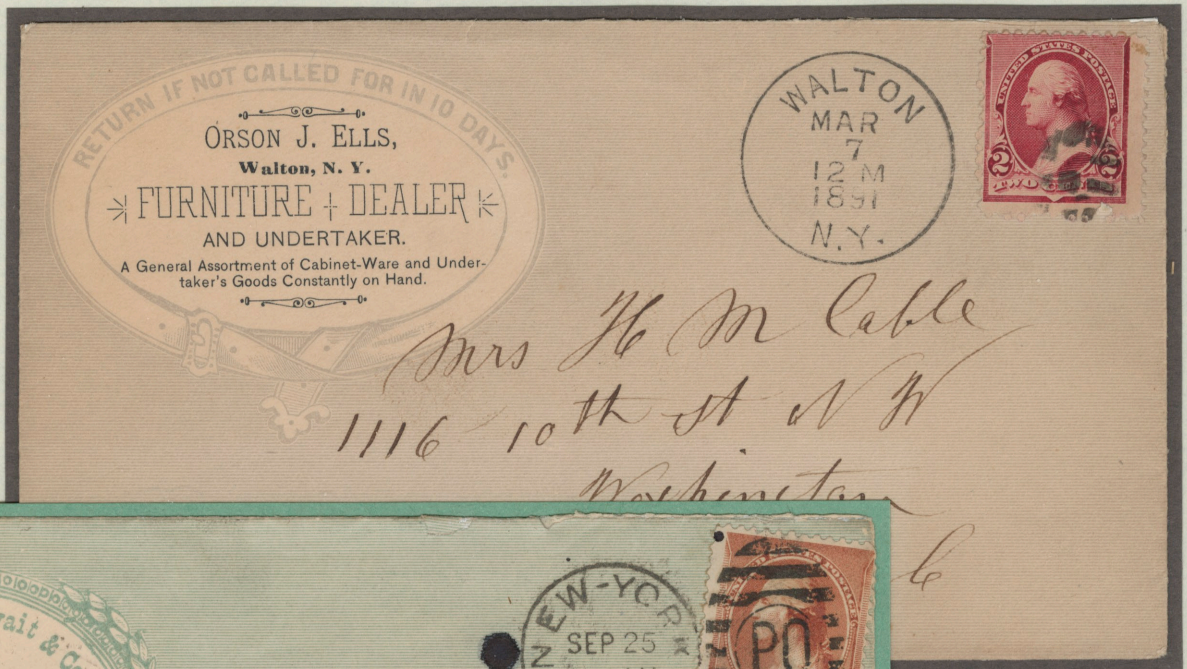 RETURN IF NOT CALLED FOR IN 10 DAYS.
ORSON J. ELLS,
Walton, N. Y.
FURNITURE DEALER
AND UNDERTAKER.
A General Assortment of Cabinet-Ware and Under-
taker's Goods Constantly on Hand.
WALTON
MAR
7
12 M
1891
N.Y.
UNITED STATES POSTAGE
2 2
TWO
Mrs H M Cable
1116 10th st N W
Washington
C
& Co
NEW-YORK
SEP 25
POSTAGE
PO